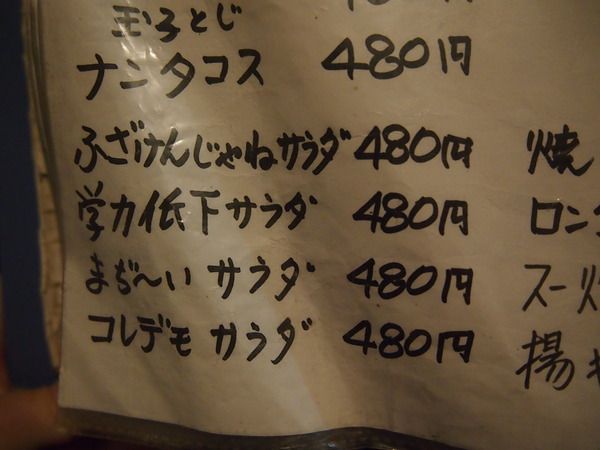 玉子とじ 480円
ナンタコス 480円
ふざけんじゃねサラダ 480円 焼
学力低下サラダ 480円 ロン
まぢ〜い サラダ 480円 スー
コレデモ サラダ 480円 揚